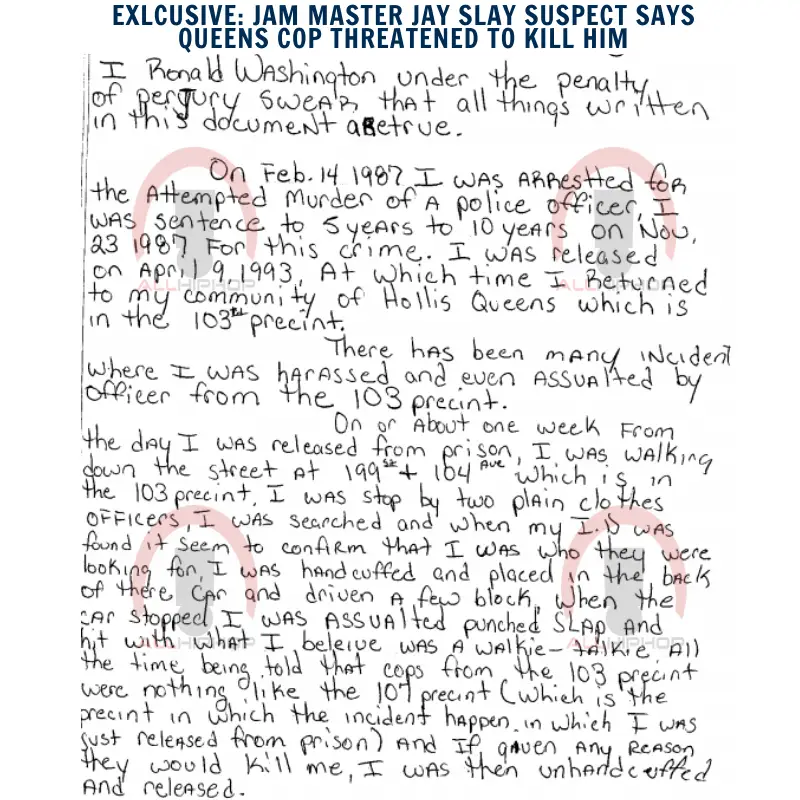 EXLCUSIVE: JAM MASTER JAY SLAY SUSPECT SAYS
QUEENS COP THREATENED TO KILL HIM
I Ronald Washington under the penalty
of perjury swear that all things written
in this document aretrue.
On Feb. 14 1987 I was arrestted for
the Attempted Murder of A police officer, I
was sentence to 5 years to 10 years on Nov,
23 1987 For this crime. I was released
on April 9, 1993, At which time I Returned
to my community of Hollis Queens which is
in the 103rd precint.
There has been many incident
where I was harassed and even assualted by
officer from the 103 precint.
On or About one week From
the day I was released from prison, I was walking
down the street at 199st + 104 Ave which is in
the 103 precint, I was stop by two plain clothes
officers, I was searched and when my I.D was
found it seem to confirm that I was who they were
looking for, I was handcuffed and placed in the back
of there car and driven a few block, when the
car stopped I was assualted punched slap and
hit with what I beleive was a walkie-talkie. All
the time being told that cops from the 103 precint
were nothing like the 107 precint (which is the
precint in which the incident happen in which I was
just released from prison) and if gauen any reason
they would kill me, I was then unhandcuffed
and released.
ALLHIPHOP
ALLHIPHOP
ALLHIPHOP
ALLHIPHOP